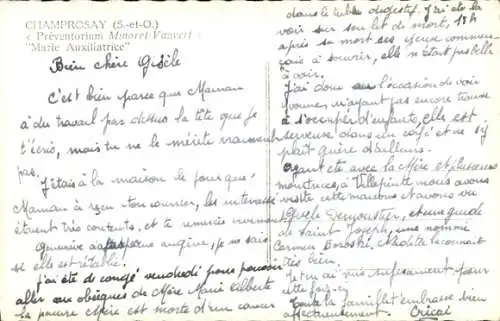 CHAMPROSAY (S.-et-O.)
« Préventorium Minoret-Vauvert »
"Marie Auxiliatrice"
Bien chère Gisèle
C'est bien parce que Maman
a du travail par dessus la tête que je
t'écris, mais tu ne le mérite vraiment
pas.
J'étais à la maison le jour que
Maman à reçu ton courrier, les
étaient très contents, et te
Geneviève a angine, je ne sais
si elle est rétablie.
J'ai été de congé vendredi pour pouvoir
aller au obsèques de Mère Marie
la pauvre Mère est morte d'un cancer
dans le tube digestif. J'ai été la
voir sur son lit de mort,
après sa mort ses yeux commen
çais à souvrir, elle n'était pas belle
à voir.
J'ai donc eu l'occasion de voir
Yvonne, n'ayant pas encore trouvé
à s'occuper d'enfants, elle est
serveuse dans un café et ne s'y
plait guère d'ailleurs.
Ayant été avec la Mère et plusieurs
monitrices, à Villepinte nous avons
visité cette maison et avons vu
Gisèle et une
de Saint Joseph, une nommé
Carmen
très bien
Je t'ai suffisament pour
cette fois-ci
Toute la famille t'embrasse bien
affectueusement.